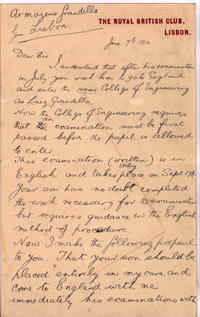 Armazens Grandella
Lisbon
THE ROYAL BRITISH CLUB,
LISBON.
June 7th
Dear Sir
I understand that after his examination
in July you wish him to go to England
and enter the College of Engineering
as Luiz Grandella.
Now the College of Engineering requires
an examination must be first
passed before the pupil is allowed
to enter.
This examination (written) is in
English and takes place in Sept
Your son has no doubt completed
the work necessary for examination
but requires guidance in the English
method of procedure.
Now I make the following proposal
to you "That your son should be
placed entirely in my care and
come to England with me
immediately his examinations